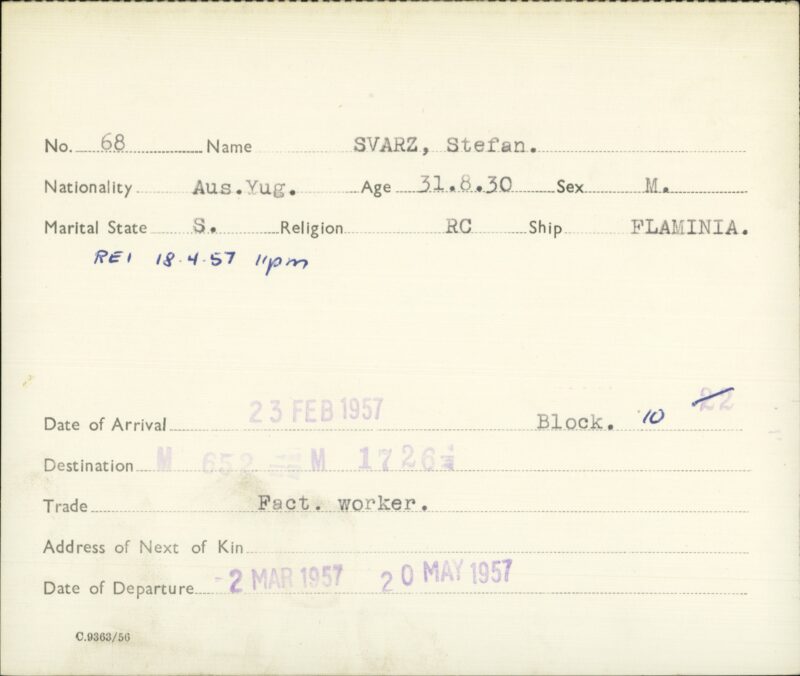 No. 68 Name SVARZ, Stefan.
Nationality Aus.Yug. Age 31.8.30 Sex M.
Marital State S. Religion RC Ship FLAMINIA.
REI 18.4.57 11pm
Date of Arrival 23 FEB 1957 Block. 10 22
Destination M 652 M 1726
Trade Fact. worker.
Address of Next of Kin
Date of Departure -2 MAR 1957 20 MAY 1957
C.9363/56